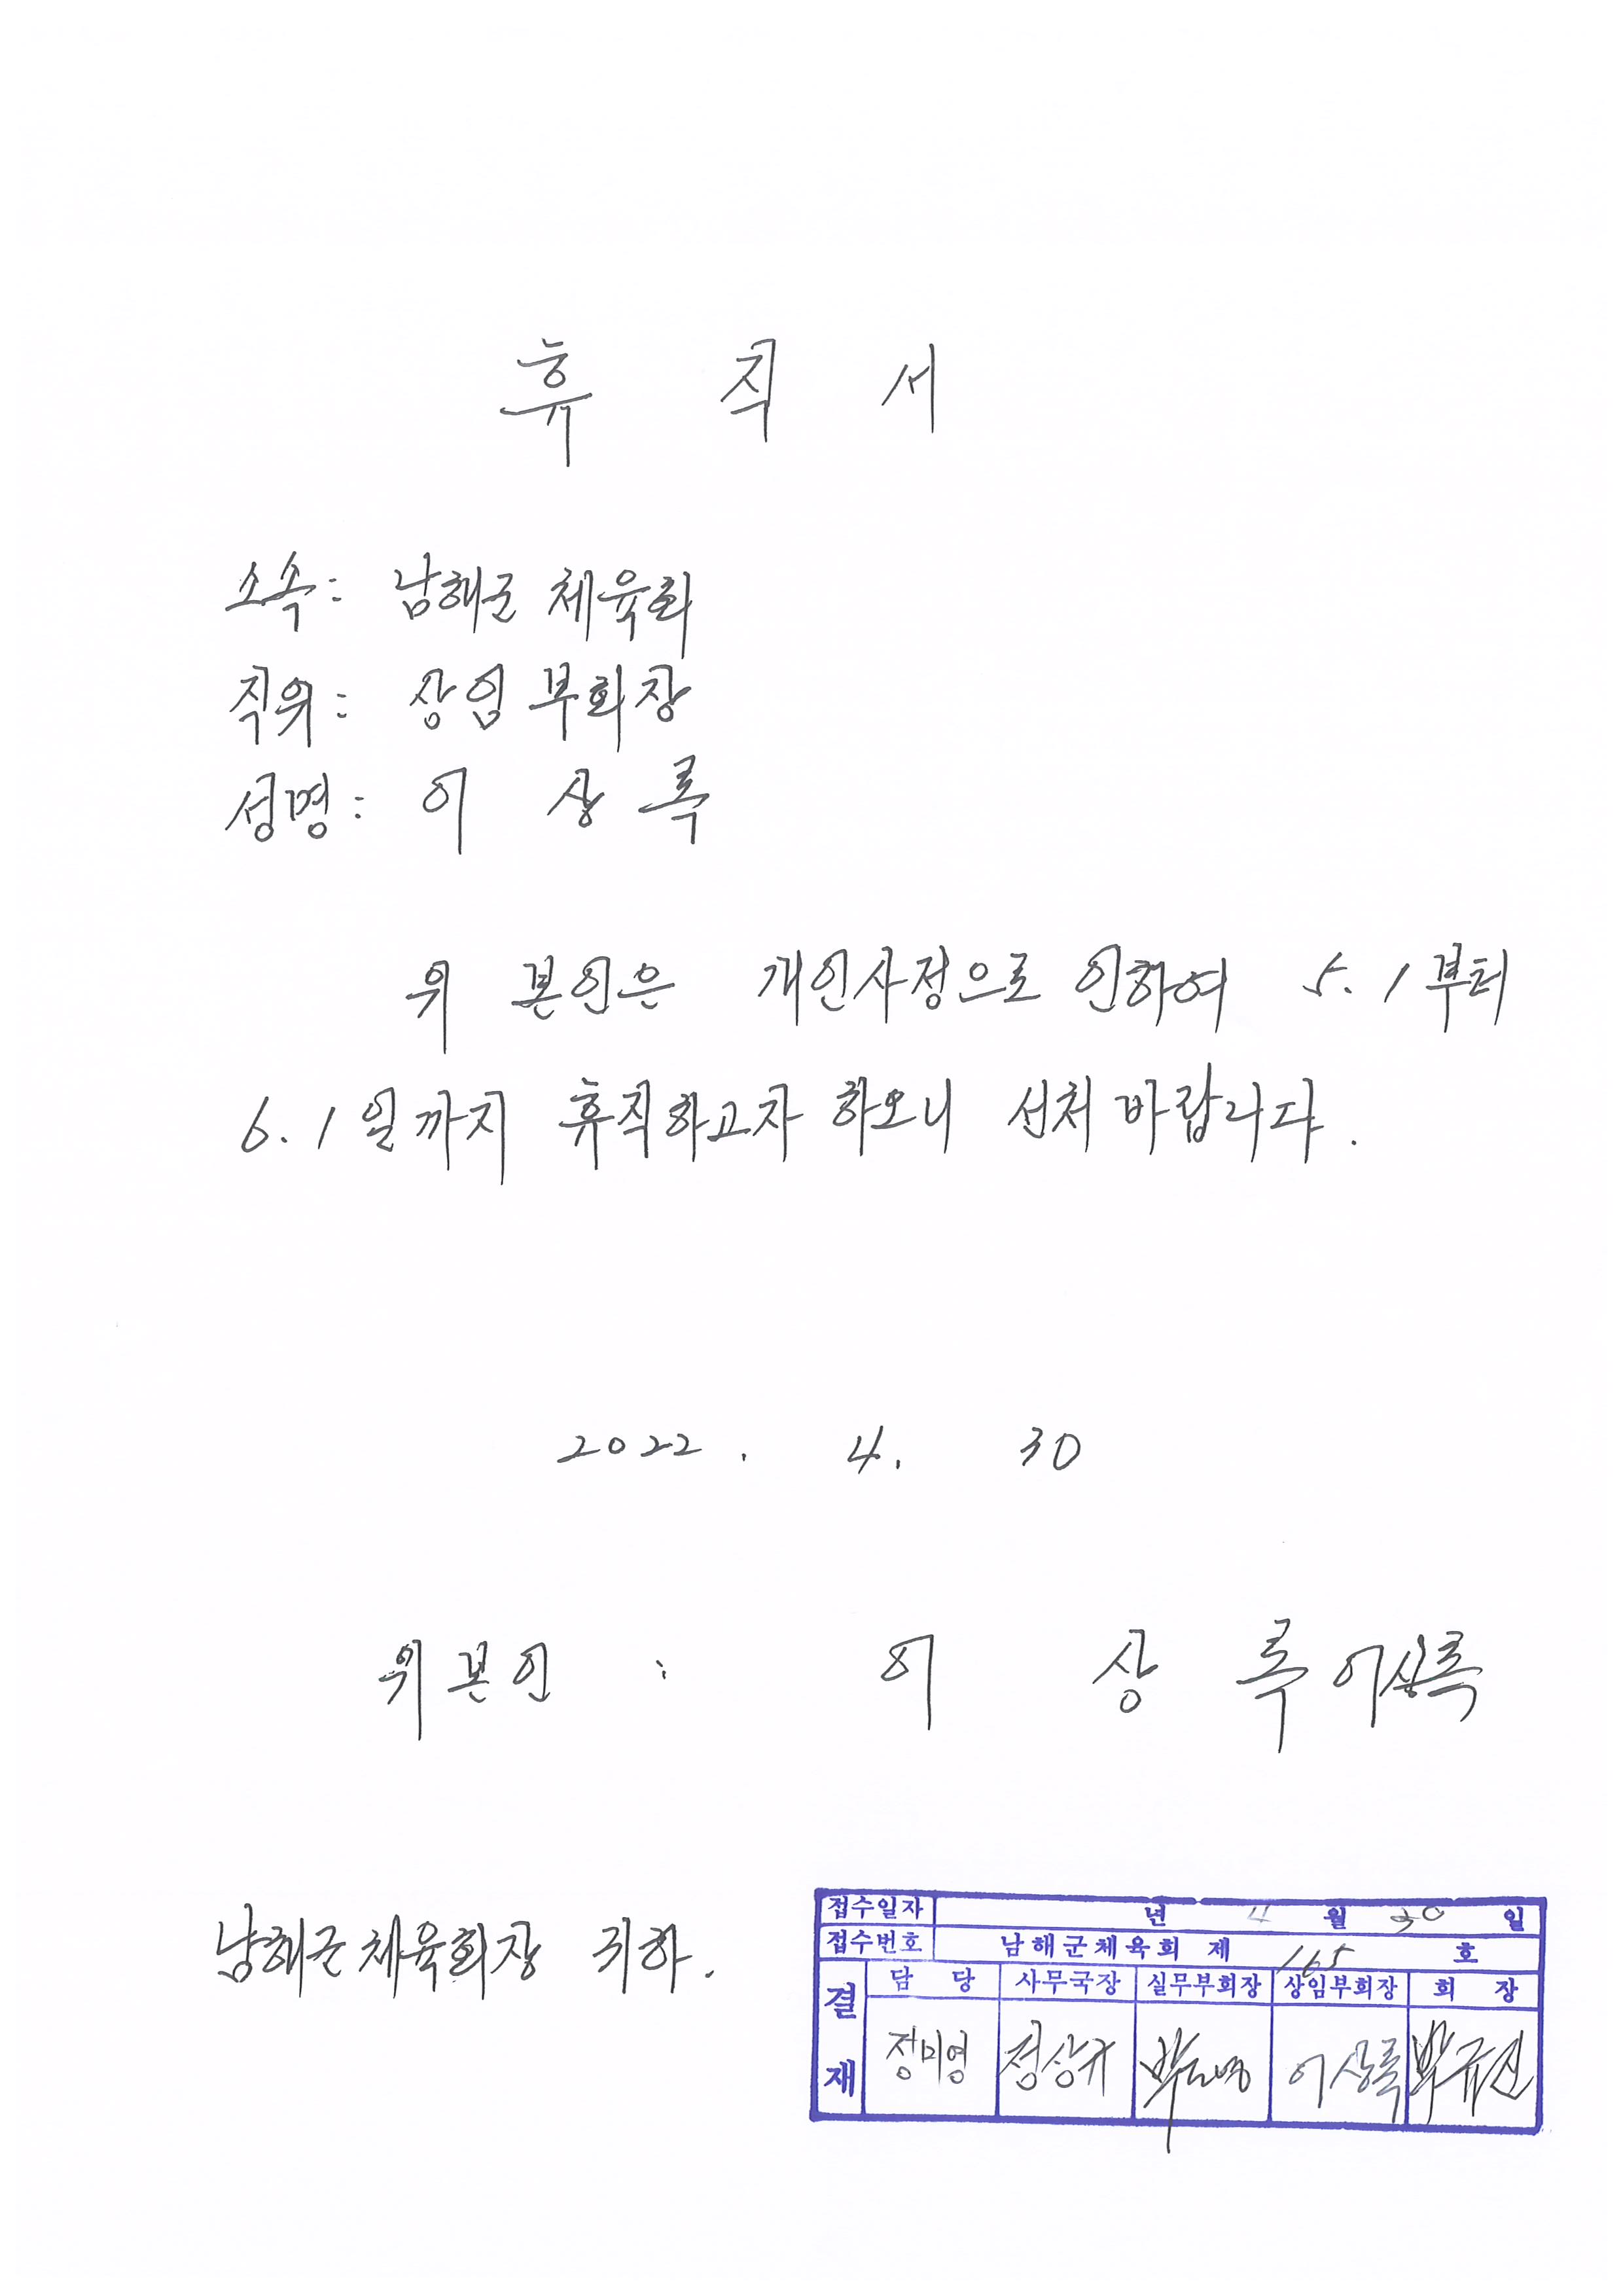 휴 직 서
소속: 남해군 체육회
직위: 상임 부회장
성명: 이 상 록
위 본인은 개인사정으로 인하여 5. 1부터
6. 1일까지 휴직하고자 하오니 선처 바랍니다.
2022. 4. 30
위 본인 : 이 상 록 이상록
남해군체육회장 귀하.
접수일자 년 4 월 30 일
접수번호 남해군체육회 제 165 호
결재
담 당 사무국장 실무부회장 상임부회장 회 장
정미영 정상규 이상록